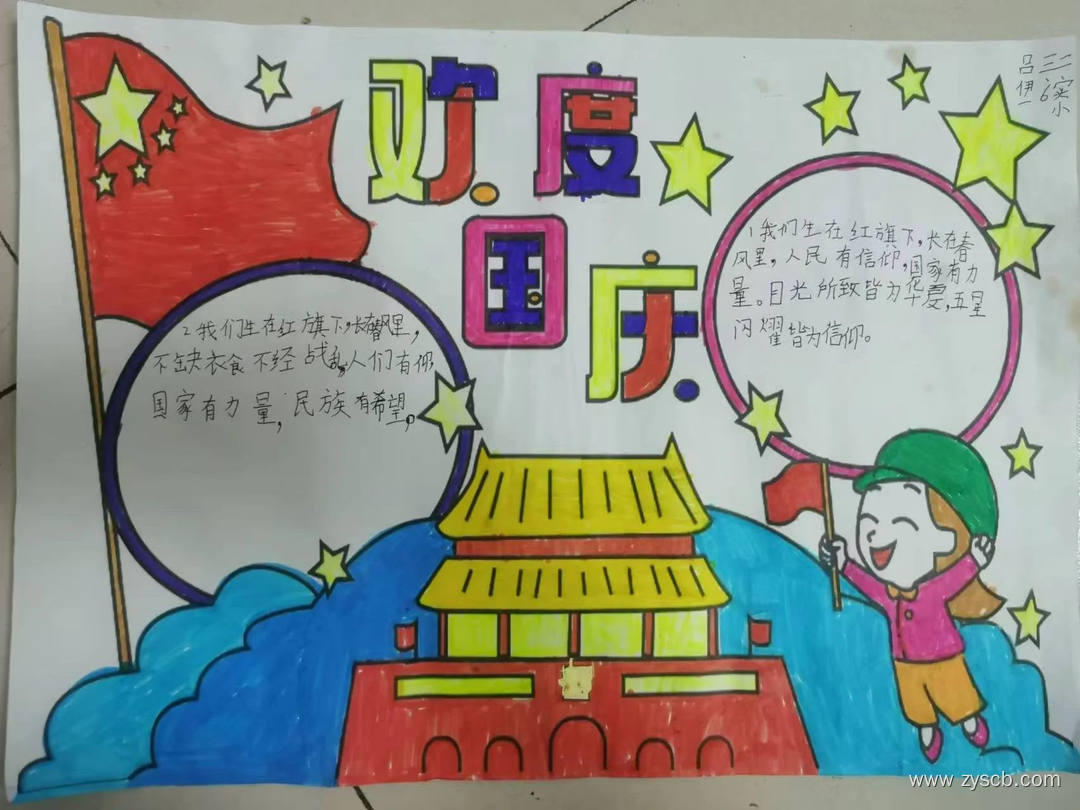 欢度
国庆
吕伊一
三6
二实小
1我们生在红旗下,长在春
风里,人民有信仰,国家有力
量。目光所致皆为华夏,五星
闪耀皆为信仰。
2我们生在红旗下,长在春风里,
不缺衣食不经战乱。人们有仰
国家有力量,民族有希望。
www.zyscb.com